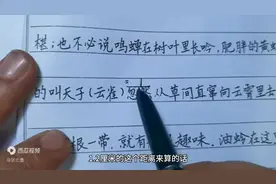 椹；也不必说鸣蝉在树叶里长吟，肥胖的黄
的叫天子（云雀）忽然从草间直窜向云霄里去
根一带，就有 趣味，油蛉在这
1.2厘米的这个距离来算的话
西瓜视频